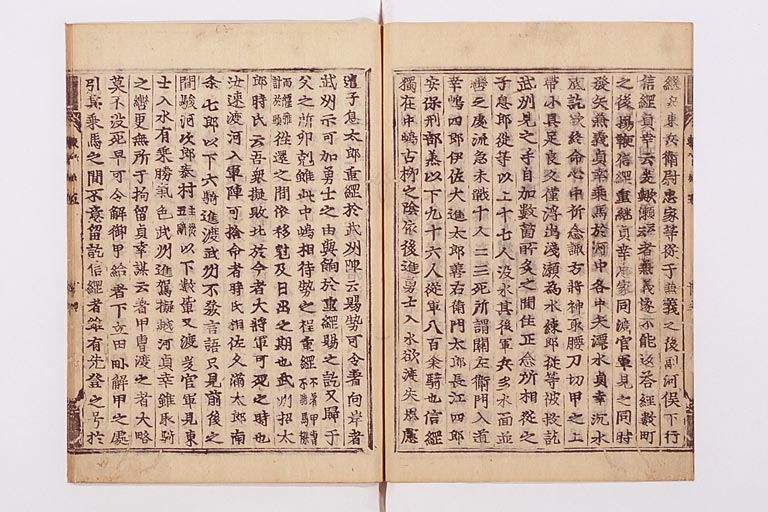 繼安東兵衛尉忠家等從于兼義之後副河俣下行
信經貞幸云爰歟瀬々者兼義遂不能返答經數町
之後揚鞭信經重継貞幸忠家同渡官軍見之同時
發矢兼義貞幸乗馬於河中各中矢漂水貞幸沉水
底訖欲終命心中祈念諏方將神取腰刀切甲之上
帶小具足良久僅浮出浅瀬為水練郎從等被救訖
武州見之手自加數箇所灸之間住正念所相從之
子息郎從等以上十七人没水其後軍兵多水面並
轡之處流急未戰十之二三死所謂關左衛門入道
幸嶋四郎伊佐大進太郎善右衛門太郎長江四郎
安保刑部丞以下九十六人從軍八百餘騎也信經
獨在中嶋古柳之陰依後進勇士入水欲渡失思慮
遣子息太郎重經於武州陣云賜勢可令着向岸者
武州示可加勇士之由與餉於重經賜之訖又歸于
父之所卯剋雖此中嶋相待勢之程重經不著甲冑不騎馬裸
而纏雖計於頭往還之間依移剋及日出之期也武州招太
郎時氏云吾衆擬敗北於今者大將軍可死之時也
汝速渡河入軍陣可捨命者時氏相佐久滿太郎南
条七郎以下六騎進渡武州不發言語只見前後之
間駿河次郎泰村主從五騎以下數輩又渡爰官軍見東
士入水有乗勝氣色武州進駕擬越河貞幸雖取騎
之轡更無所于拘留貞幸謀云著甲冑渡之者大略
莫不没死早可令解御甲給者下立田畝解甲之處
引隱乗馬之間不意留訖信經者雖有先登之号於